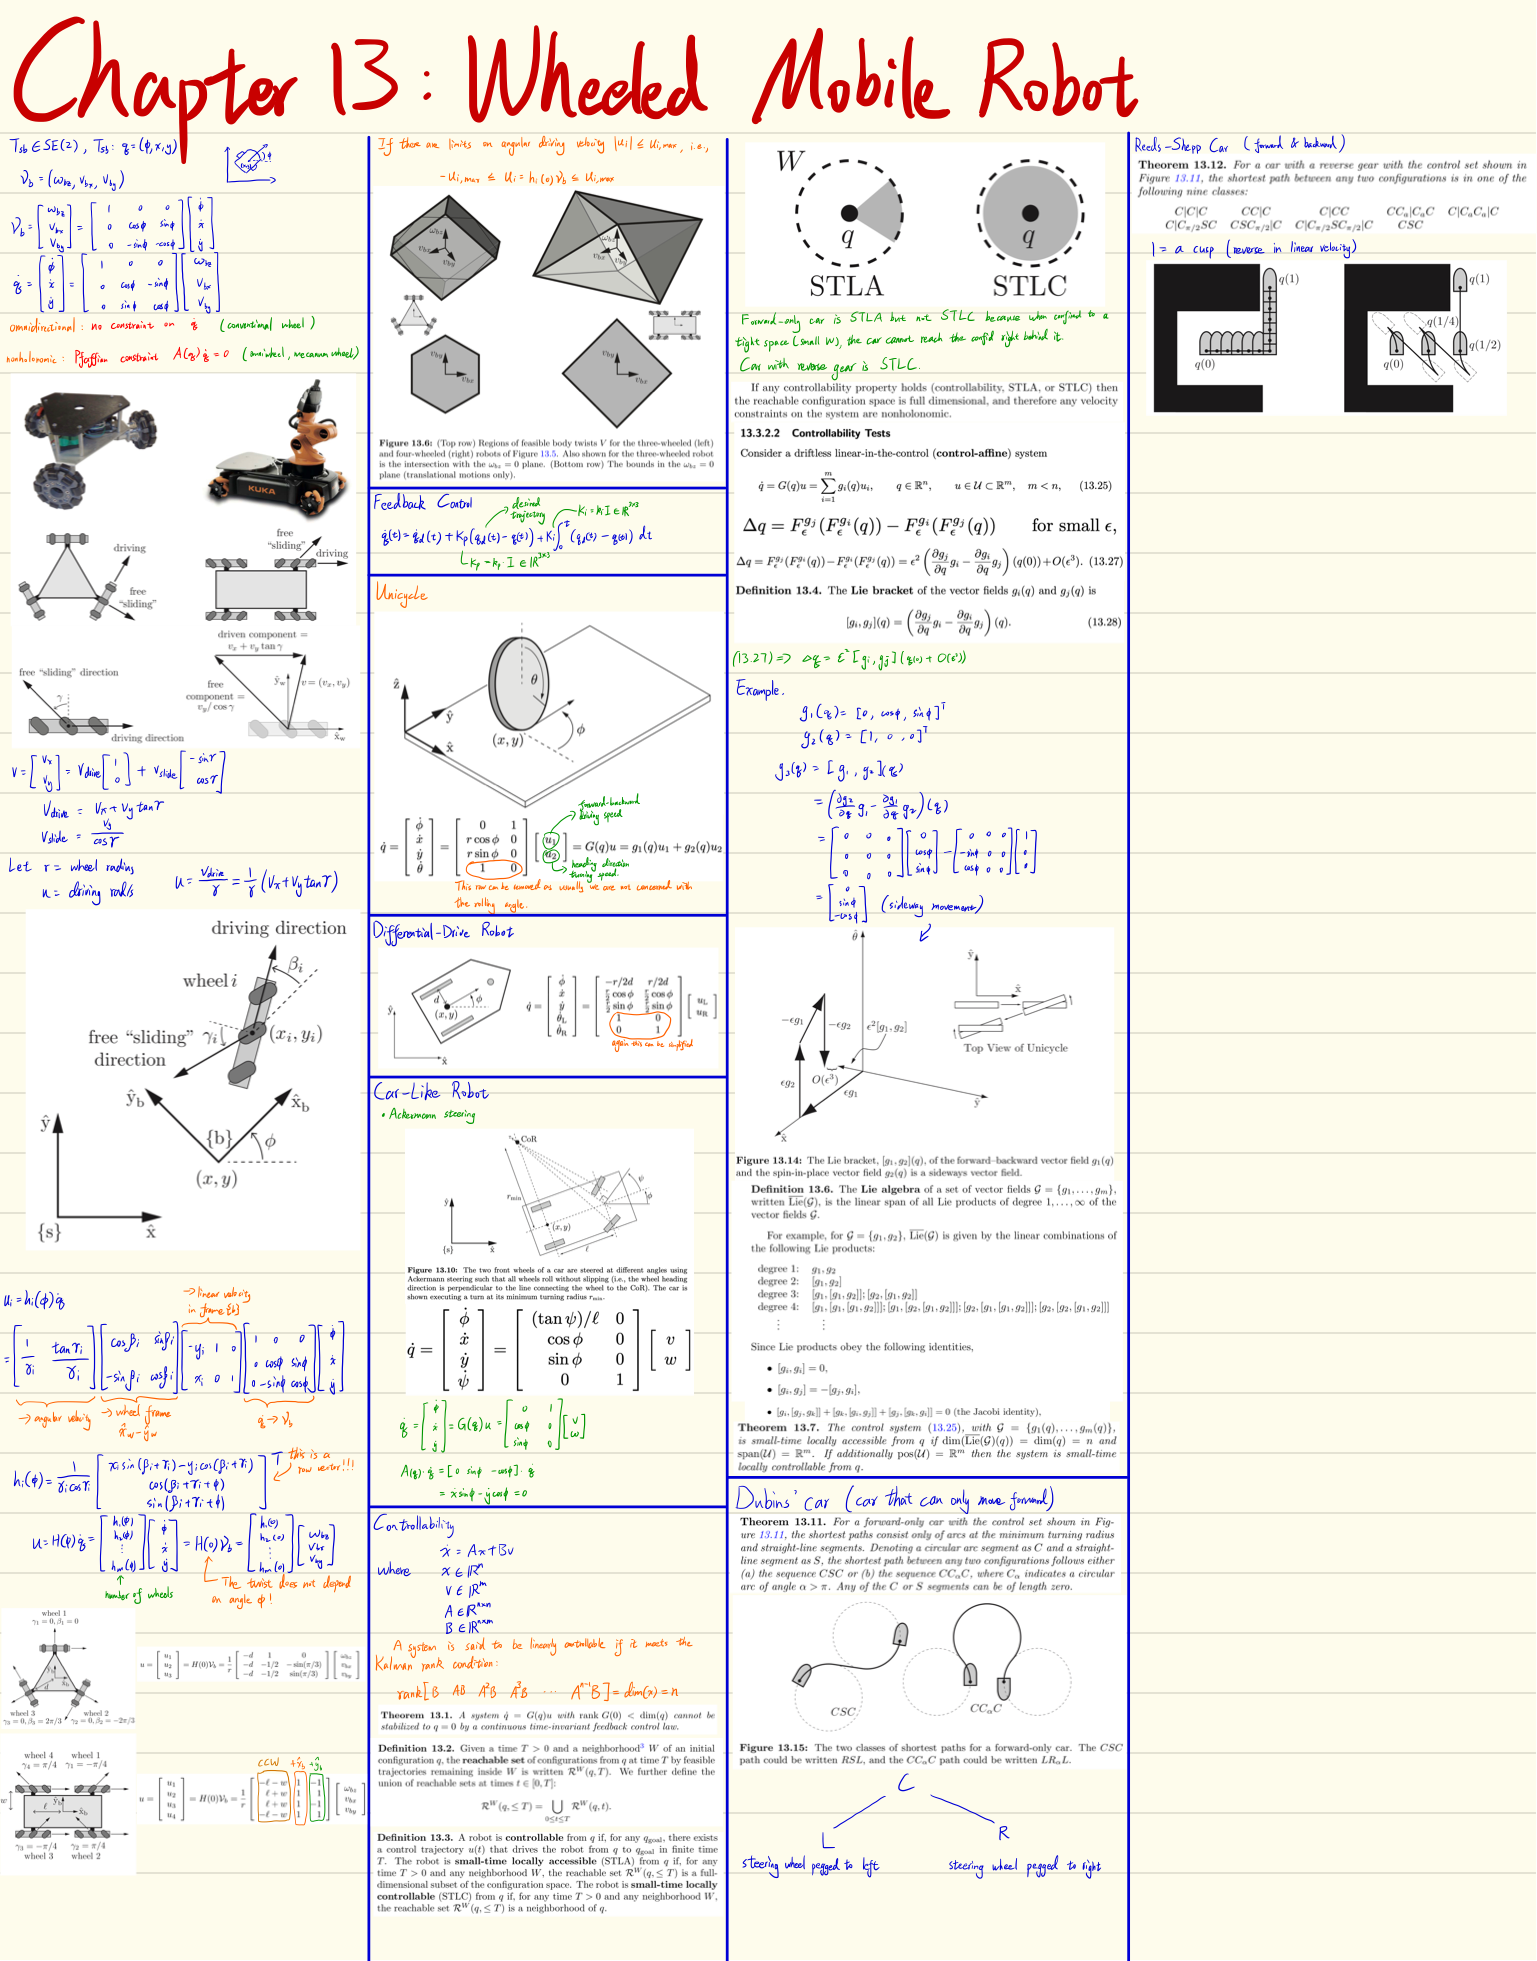 Chapter 13: Wheeled Mobile Robot
Tsb ∈ SE(2), Tsb: q = (ϕ, x, y)
𝒱b = (ωbz, vbx, vby)
𝒱b = [ωbz; vbx; vby] = [1 0 0; 0 cosϕ sinϕ; 0 -sinϕ cosϕ] [ϕ̇; ẋ; ẏ]
q̇ = [ϕ̇; ẋ; ẏ] = [1 0 0; 0 cosϕ -sinϕ; 0 sinϕ cosϕ] [ωbz; vbx; vby]
omnidirectional: no constraint on q̇ (conventional wheel)
nonholonomic: Pfaffian constraint A(q)q̇ = 0 (omniwheel, mecanum wheel)
KUKA
driving
free "sliding"
free "sliding"
driving
driven component = vx + vy tan γ
free "sliding" direction
γ
driving direction
free component = vy/cos γ
ŷw
v = (vx, vy)
x̂w
v = [vx; vy] = vdrive [1; 0] + vslide [-sinγ; cosγ]
vdrive = vx + vy tanγ
vslide = vy / cosγ
Let r = wheel radius
u = driving rad/s
u = vdrive / r = 1/r (vx + vy tanγ)
driving direction
βi
wheel i
free "sliding" direction
γi
(xi, yi)
ŷb
x̂b
{b}
ϕ
(x, y)
ŷ
{s}
x̂
ui = hi(ϕ)q̇
→ linear velocity in frame {b}
= [1/ri tanγi/ri] [cosβi sinβi; -sinβi cosβi] [-yi 1 0; xi 0 1] [1 0 0; 0 cosϕ sinϕ; 0 -sinϕ cosϕ] [ϕ̇; ẋ; ẏ]
→ angular velocity
→ wheel frame x̂w - ŷw
q̇ → 𝒱b
hi(ϕ) = 1/(ri cosγi) [xi sin(βi+γi) - yi cos(βi+γi); cos(βi+γi+ϕ); sin(βi+γi+ϕ)]T
this is a row vector!!!
u = H(ϕ)q̇ = [h1(ϕ); h2(ϕ); ⋮; hm(ϕ)] [ϕ̇; ẋ; ẏ] = H(0)𝒱b = [h1(0); h2(0); ⋮; hm(0)] [ωbz; vbx; vby]
number of wheels
The twist does not depend on angle ϕ!
wheel 1
γ1 = 0, β1 = 0
wheel 3
γ3 = 0, β3 = 2π/3
wheel 2
γ2 = 0, β2 = −2π/3
u = [u1; u2; u3] = H(0)𝒱b = 1/r [−d 1 0; −d −1/2 −sin(π/3); −d −1/2 sin(π/3)] [ωbz; vbx; vby]
wheel 4
γ4 = π/4
wheel 1
γ1 = −π/4
γ3 = −π/4
wheel 3
γ2 = π/4
wheel 2
CCW +x̂b +ŷb
u = [u1; u2; u3; u4] = H(0)𝒱b = 1/r [−ℓ − w 1 −1; ℓ + w 1 1; ℓ + w 1 −1; −ℓ − w 1 1] [ωbz; vbx; vby]
If there are limits on angular driving velocity |ui| ≤ ui,max, i.e.,
-ui,max ≤ ui = hi(0)𝒱b ≤ ui,max
ωbz
vbx
vby
Figure 13.6: (Top row) Regions of feasible body twists V for the three-wheeled (left)
and four-wheeled (right) robots of Figure 13.5. Also shown for the three-wheeled robot
is the intersection with the ωbz = 0 plane. (Bottom row) The bounds in the ωbz = 0
plane (translational motions only).
Feedback Control
desired trajectory
Ki = ki I ∈ ℝ3×3
q̇(t) = q̇d(t) + Kp(qd(t) - q(t)) + Ki ∫0t (qd(t) - q(t)) dt
Kp = kp · I ∈ ℝ3×3
Unicycle
ẑ
ŷ
x̂
θ
(x, y)
ϕ
forward-backward driving speed
q̇ = [ϕ̇; ẋ; ẏ; θ̇] = [0 1; r cos ϕ 0; r sin ϕ 0; 1 0] [u1; u2] = G(q)u = g1(q)u1 + g2(q)u2
heading direction turning speed.
This row can be removed as usually we are not concerned with
the rolling angle.
Differential-Drive Robot
d
ϕ
(x, y)
ŷ
x̂
q̇ = [ϕ̇; ẋ; ẏ; θ̇L; θ̇R] = [−r/2d r/2d; r/2 cos ϕ r/2 cos ϕ; r/2 sin ϕ r/2 sin ϕ; 1 0; 0 1] [uL; uR]
again this can be simplified
Car-Like Robot
• Ackermann steering
CoR
rmin
ψ
ϕ
(x, y)
ℓ
ŷ
{s}
x̂
Figure 13.10: The two front wheels of a car are steered at different angles using
Ackermann steering such that all wheels roll without slipping (i.e., the wheel heading
direction is perpendicular to the line connecting the wheel to the CoR). The car is
shown executing a turn at its minimum turning radius rmin.
q̇ = [ϕ̇; ẋ; ẏ; ψ̇] = [(tan ψ)/ℓ 0; cos ϕ 0; sin ϕ 0; 0 1] [v; w]
q̇ = [ϕ̇; ẋ; ẏ] = G(q)u = [0 1; cosϕ 0; sinϕ 0] [v; ω]
A(q)·q̇ = [0 sinϕ -cosϕ]·q̇
= ẋsinϕ - ẏcosϕ = 0
Controllability
ẋ = Ax + Bv
where x ∈ ℝn
v ∈ ℝm
A ∈ ℝn×n
B ∈ ℝn×m
A system is said to be linearly controllable if it meets the
Kalman rank condition:
rank[B AB A²B A³B ⋯ An-1B] = dim(x) = n
Theorem 13.1. A system q̇ = G(q)u with rank G(0) < dim(q) cannot be
stabilized to q = 0 by a continuous time-invariant feedback control law.
Definition 13.2. Given a time T > 0 and a neighborhood³ W of an initial
configuration q, the reachable set of configurations from q at time T by feasible
trajectories remaining inside W is written ℛW(q, T). We further define the
union of reachable sets at times t ∈ [0, T]:
ℛW(q, ≤ T) = ⋃0≤t≤T ℛW(q, t).
Definition 13.3. A robot is controllable from q if, for any qgoal, there exists
a control trajectory u(t) that drives the robot from q to qgoal in finite time
T. The robot is small-time locally accessible (STLA) from q if, for any
time T > 0 and any neighborhood W, the reachable set ℛW(q, ≤ T) is a full-
dimensional subset of the configuration space. The robot is small-time locally
controllable (STLC) from q if, for any time T > 0 and any neighborhood W,
the reachable set ℛW(q, ≤ T) is a neighborhood of q.
W
q
q
STLA
STLC
Forward-only car is STLA but not STLC because when confined to a
tight space (small W), the car cannot reach the config right behind it.
Car with reverse gear is STLC.
If any controllability property holds (controllability, STLA, or STLC) then
the reachable configuration space is full dimensional, and therefore any velocity
constraints on the system are nonholonomic.
13.3.2.2 Controllability Tests
Consider a driftless linear-in-the-control (control-affine) system
q̇ = G(q)u = ∑i=1m gi(q)ui, q ∈ ℝn, u ∈ 𝒰 ⊂ ℝm, m < n, (13.25)
Δq = Fϵgj(Fϵgi(q)) − Fϵgi(Fϵgj(q)) for small ϵ,
Δq = Fϵgj(Fϵgi(q))−Fϵgi(Fϵgj(q)) = ϵ² (∂gj/∂q gi − ∂gi/∂q gj) (q(0))+O(ϵ³). (13.27)
Definition 13.4. The Lie bracket of the vector fields gi(q) and gj(q) is
[gi, gj](q) = (∂gj/∂q gi − ∂gi/∂q gj) (q). (13.28)
(13.27) => Δq = ε²[gi, gj](q(0) + O(ε³))
Example.
g1(q) = [0, cosϕ, sinϕ]T
g2(q) = [1, 0, 0]T
g3(q) = [g1, g2](q)
= (∂g2/∂q g1 - ∂g1/∂q g2)(q)
= [0 0 0; 0 0 0; 0 0 0] [0; cosϕ; sinϕ] - [0 0 0; -sinϕ 0 0; cosϕ 0 0] [1; 0; 0]
= [0; sinϕ; -cosϕ] (sideway movement)
θ̂
−ϵg1
−ϵg2
ϵ²[g1, g2]
ϵg2
O(ϵ³)
ϵg1
ŷ
x̂
ŷ
x̂
Top View of Unicycle
Figure 13.14: The Lie bracket, [g1, g2](q), of the forward–backward vector field g1(q)
and the spin-in-place vector field g2(q) is a sideways vector field.
Definition 13.6. The Lie algebra of a set of vector fields 𝒢 = {g1, . . . , gm},
written Lie(𝒢), is the linear span of all Lie products of degree 1, . . . , ∞ of the
vector fields 𝒢.
For example, for 𝒢 = {g1, g2}, Lie(𝒢) is given by the linear combinations of
the following Lie products:
degree 1: g1, g2
degree 2: [g1, g2]
degree 3: [g1, [g1, g2]]; [g2, [g1, g2]]
degree 4: [g1, [g1, [g1, g2]]]; [g1, [g2, [g1, g2]]]; [g2, [g1, [g1, g2]]]; [g2, [g2, [g1, g2]]]
⋮ ⋮
Since Lie products obey the following identities,
• [gi, gi] = 0,
• [gi, gj] = −[gj, gi],
• [gi, [gj, gk]] + [gk, [gi, gj]] + [gj, [gk, gi]] = 0 (the Jacobi identity),
Theorem 13.7. The control system (13.25), with 𝒢 = {g1(q), . . . , gm(q)},
is small-time locally accessible from q if dim(Lie(𝒢)(q)) = dim(q) = n and
span(𝒰) = ℝm. If additionally pos(𝒰) = ℝm then the system is small-time
locally controllable from q.
Dubins' car (car that can only move forward)
Theorem 13.11. For a forward-only car with the control set shown in Fig-
ure 13.11, the shortest paths consist only of arcs at the minimum turning radius
and straight-line segments. Denoting a circular arc segment as C and a straight-
line segment as S, the shortest path between any two configurations follows either
(a) the sequence CSC or (b) the sequence CCαC, where Cα indicates a circular
arc of angle α > π. Any of the C or S segments can be of length zero.
CSC
CCαC
Figure 13.15: The two classes of shortest paths for a forward-only car. The CSC
path could be written RSL, and the CCαC path could be written LRαL.
C
L
R
steering wheel pegged to left
steering wheel pegged to right
Reeds-Shepp Car (forward & backward)
Theorem 13.12. For a car with a reverse gear with the control set shown in
Figure 13.11, the shortest path between any two configurations is in one of the
following nine classes:
C|C|C CC|C C|CC CCα|CαC C|CαCα|C
C|Cπ/2SC CSCπ/2|C C|Cπ/2SCπ/2|C CSC
| = a cusp (reverse in linear velocity)
q(1)
q(0)
q(1)
q(1/4)
q(1/2)
q(0)